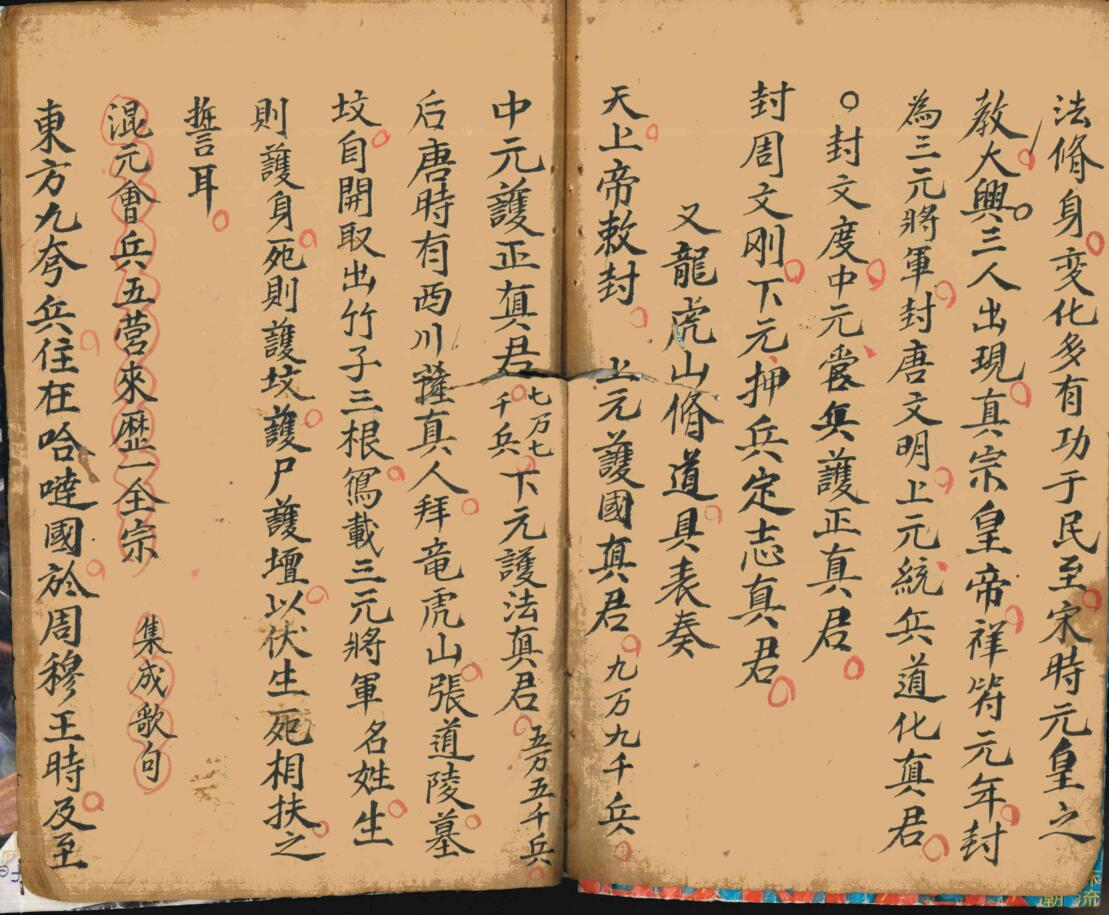 法脩身变化多有功于民至宋時元皇之
教大興三人出現真宗皇帝祥符元年封
為三元將軍封唐文明上元統兵道化真君
封文度中元賞兵護正真君
封周文刚下元押兵定志真君
又龍虎山脩道具表奏
天上帝敕封 上元護國真君九万九千兵
中元護正真君七万七千兵下元護法真君五万五千兵
后唐時有西川薩真人拜竜虎山張道陵墓
坟自開取出竹子三根寫載三元將軍名姓生
則護身死則護坟護尸護壇以伏生死相扶之
誓耳
混元會兵五营來歷一全宗 集成歌句
東方九夸兵住在哈噠國於周穆王時及至